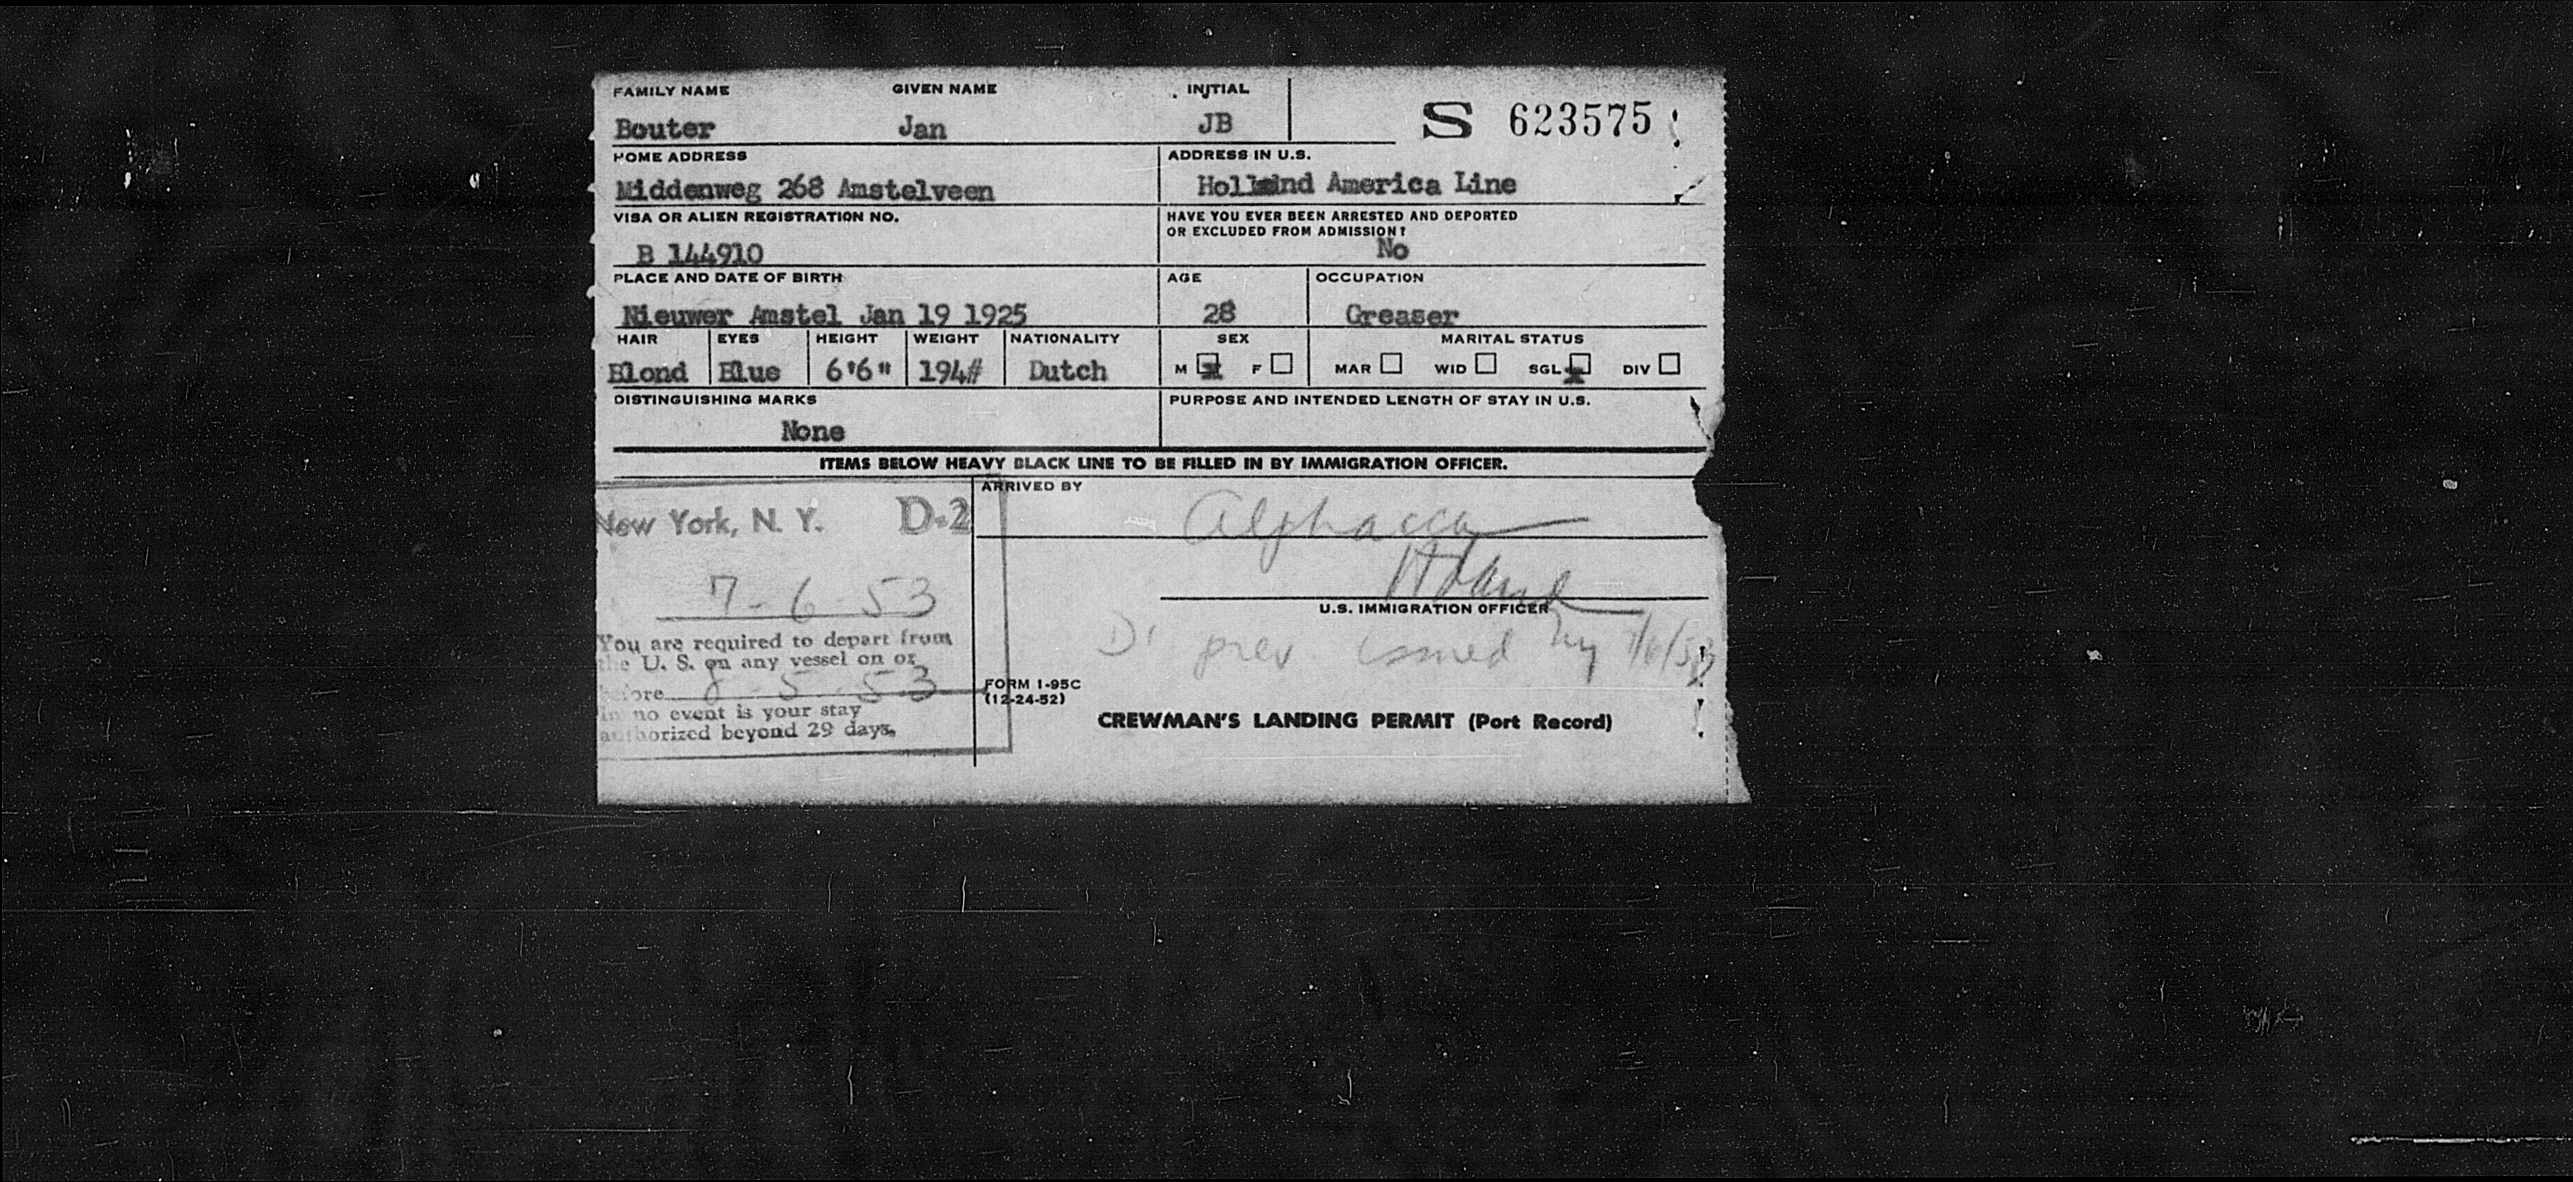 FAMILY NAME GIVEN NAME INITIAL
S 623575
Bouter Jan JB
HOME ADDRESS ADDRESS IN U.S.
Middenweg 268 Amstelveen Holland America Line
VISA OR ALIEN REGISTRATION NO. HAVE YOU EVER BEEN ARRESTED AND DEPORTED
OR EXCLUDED FROM ADMISSION?
B 144910 No
PLACE AND DATE OF BIRTH AGE OCCUPATION
Nieuwer Amstel Jan 19 1925 28 Greaser
HAIR EYES HEIGHT WEIGHT NATIONALITY SEX MARITAL STATUS
Blond Blue 6'6" 194# Dutch M F MAR WID SGL DIV
DISTINGUISHING MARKS PURPOSE AND INTENDED LENGTH OF STAY IN U.S.
None
ITEMS BELOW HEAVY BLACK LINE TO BE FILLED IN BY IMMIGRATION OFFICER.
ARRIVED BY
New York, N. Y. D-2
Alphacca
7-6-53
U.S. IMMIGRATION OFFICER
D1 prev issued NY 7/6/53
You are required to depart from
the U. S. on any vessel on or
before 8-5-53
In no event is your stay
authorized beyond 29 days.
FORM I-95C
(12-24-52)
CREWMAN'S LANDING PERMIT (Port Record)